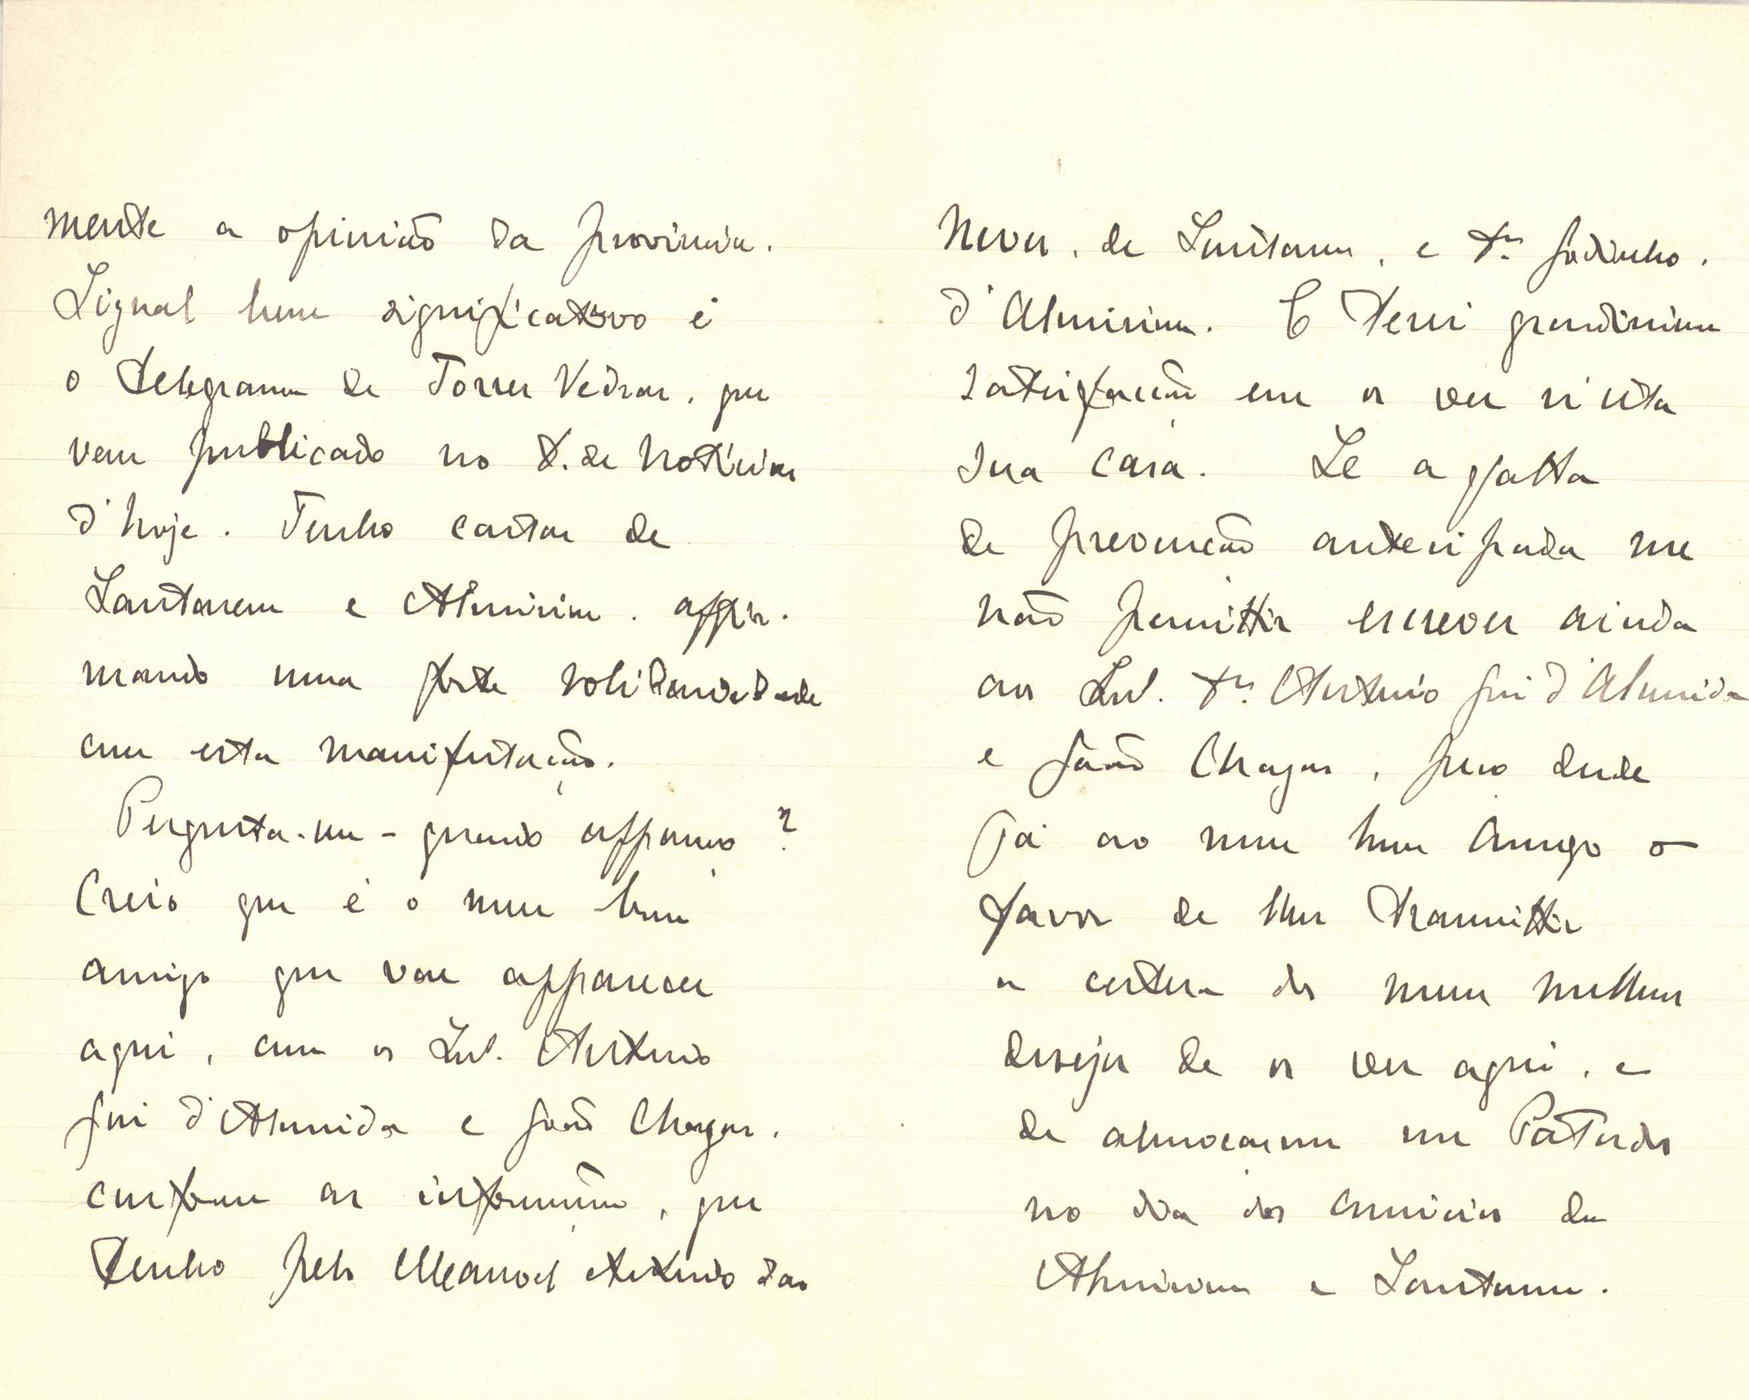 mente a opinião da provincia.
Signal bem significativo é
o telegramma de Torres Vedras, que
vem publicado no D. de Noticias
d'hoje. Tenho cartas de
Santarem e Almeirim, affir-
mando uma forte solidariedade
com esta manifestação.
Pergunta-me - quando appareço?
Creio que é o meu bom
amigo que vae apparecer
aqui, com os Snrs. Antonio
José d'Almeida e João Chagas,
conforme as informações, que
tenho pelo Manoel Antonio das
Neves, de Santarem, e Dr. Godinho,
d'Almeirim. E terei grandissima
satisfação em os ver n'esta
sua casa. Se a falta
de prevenção antecipada me
não permittir escrever ainda
aos Snrs. Dr. Antonio José d'Almeida
e João Chagas, peço desde
já ao meu bom amigo o
favor de lhes transmittir
a certeza dos meus melhores
desejos de os ver aqui, e
de almoçarmos em Patudos
no dia dos comicios de
Almeirim e Santarem.